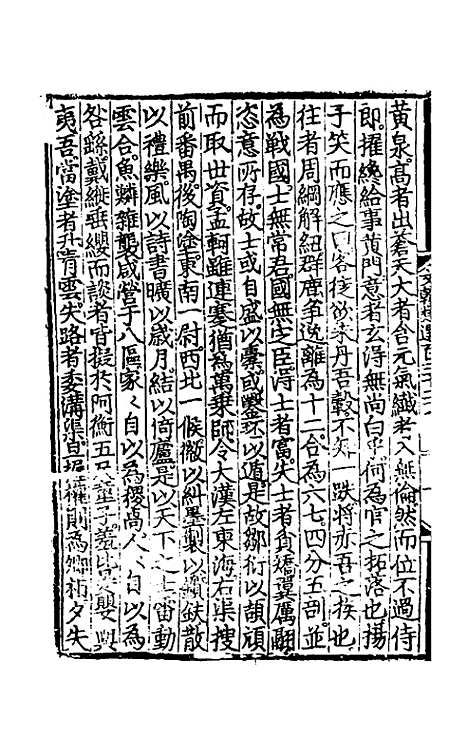 黃泉。髙者出蒼天大者含元氣纎者入無倫然而位不過侍
郎。擢纔給事黄門意者玄得無尚白乎何為官之拓落也揚
子笑而應之曰客徒欲朱丹吾轂不知一跌將赤吾之族也
往者周綱解紐群鹿争逸離為十二合為六七。四分五剖。並
為戰國。士無常君。國無㝎臣。得士者富。失士者貧矯翼厲翮
恣意所存。故士或自盛以橐。或鑿坏以遁。是故鄒衍以頡頏
而取世資。孟軻雖連蹇猶為萬乗師今大漢左東海右渠搜
前番禺後陶塗。東南一尉。西北一候。徽以糾墨製以鑕鈇散
以禮樂風以詩書曠以歳月。結以倚廬是以天下之士雷動
雲合魚鱗雜襲咸營于八區家〻自以為稷卨。人〻自以為
咎繇戴縰垂纓而談者皆擬於阿衡五尺童子。羞比晏嬰與
夷吾。當塗者升青雲失路者委溝渠。旦握權則為卿相夕失